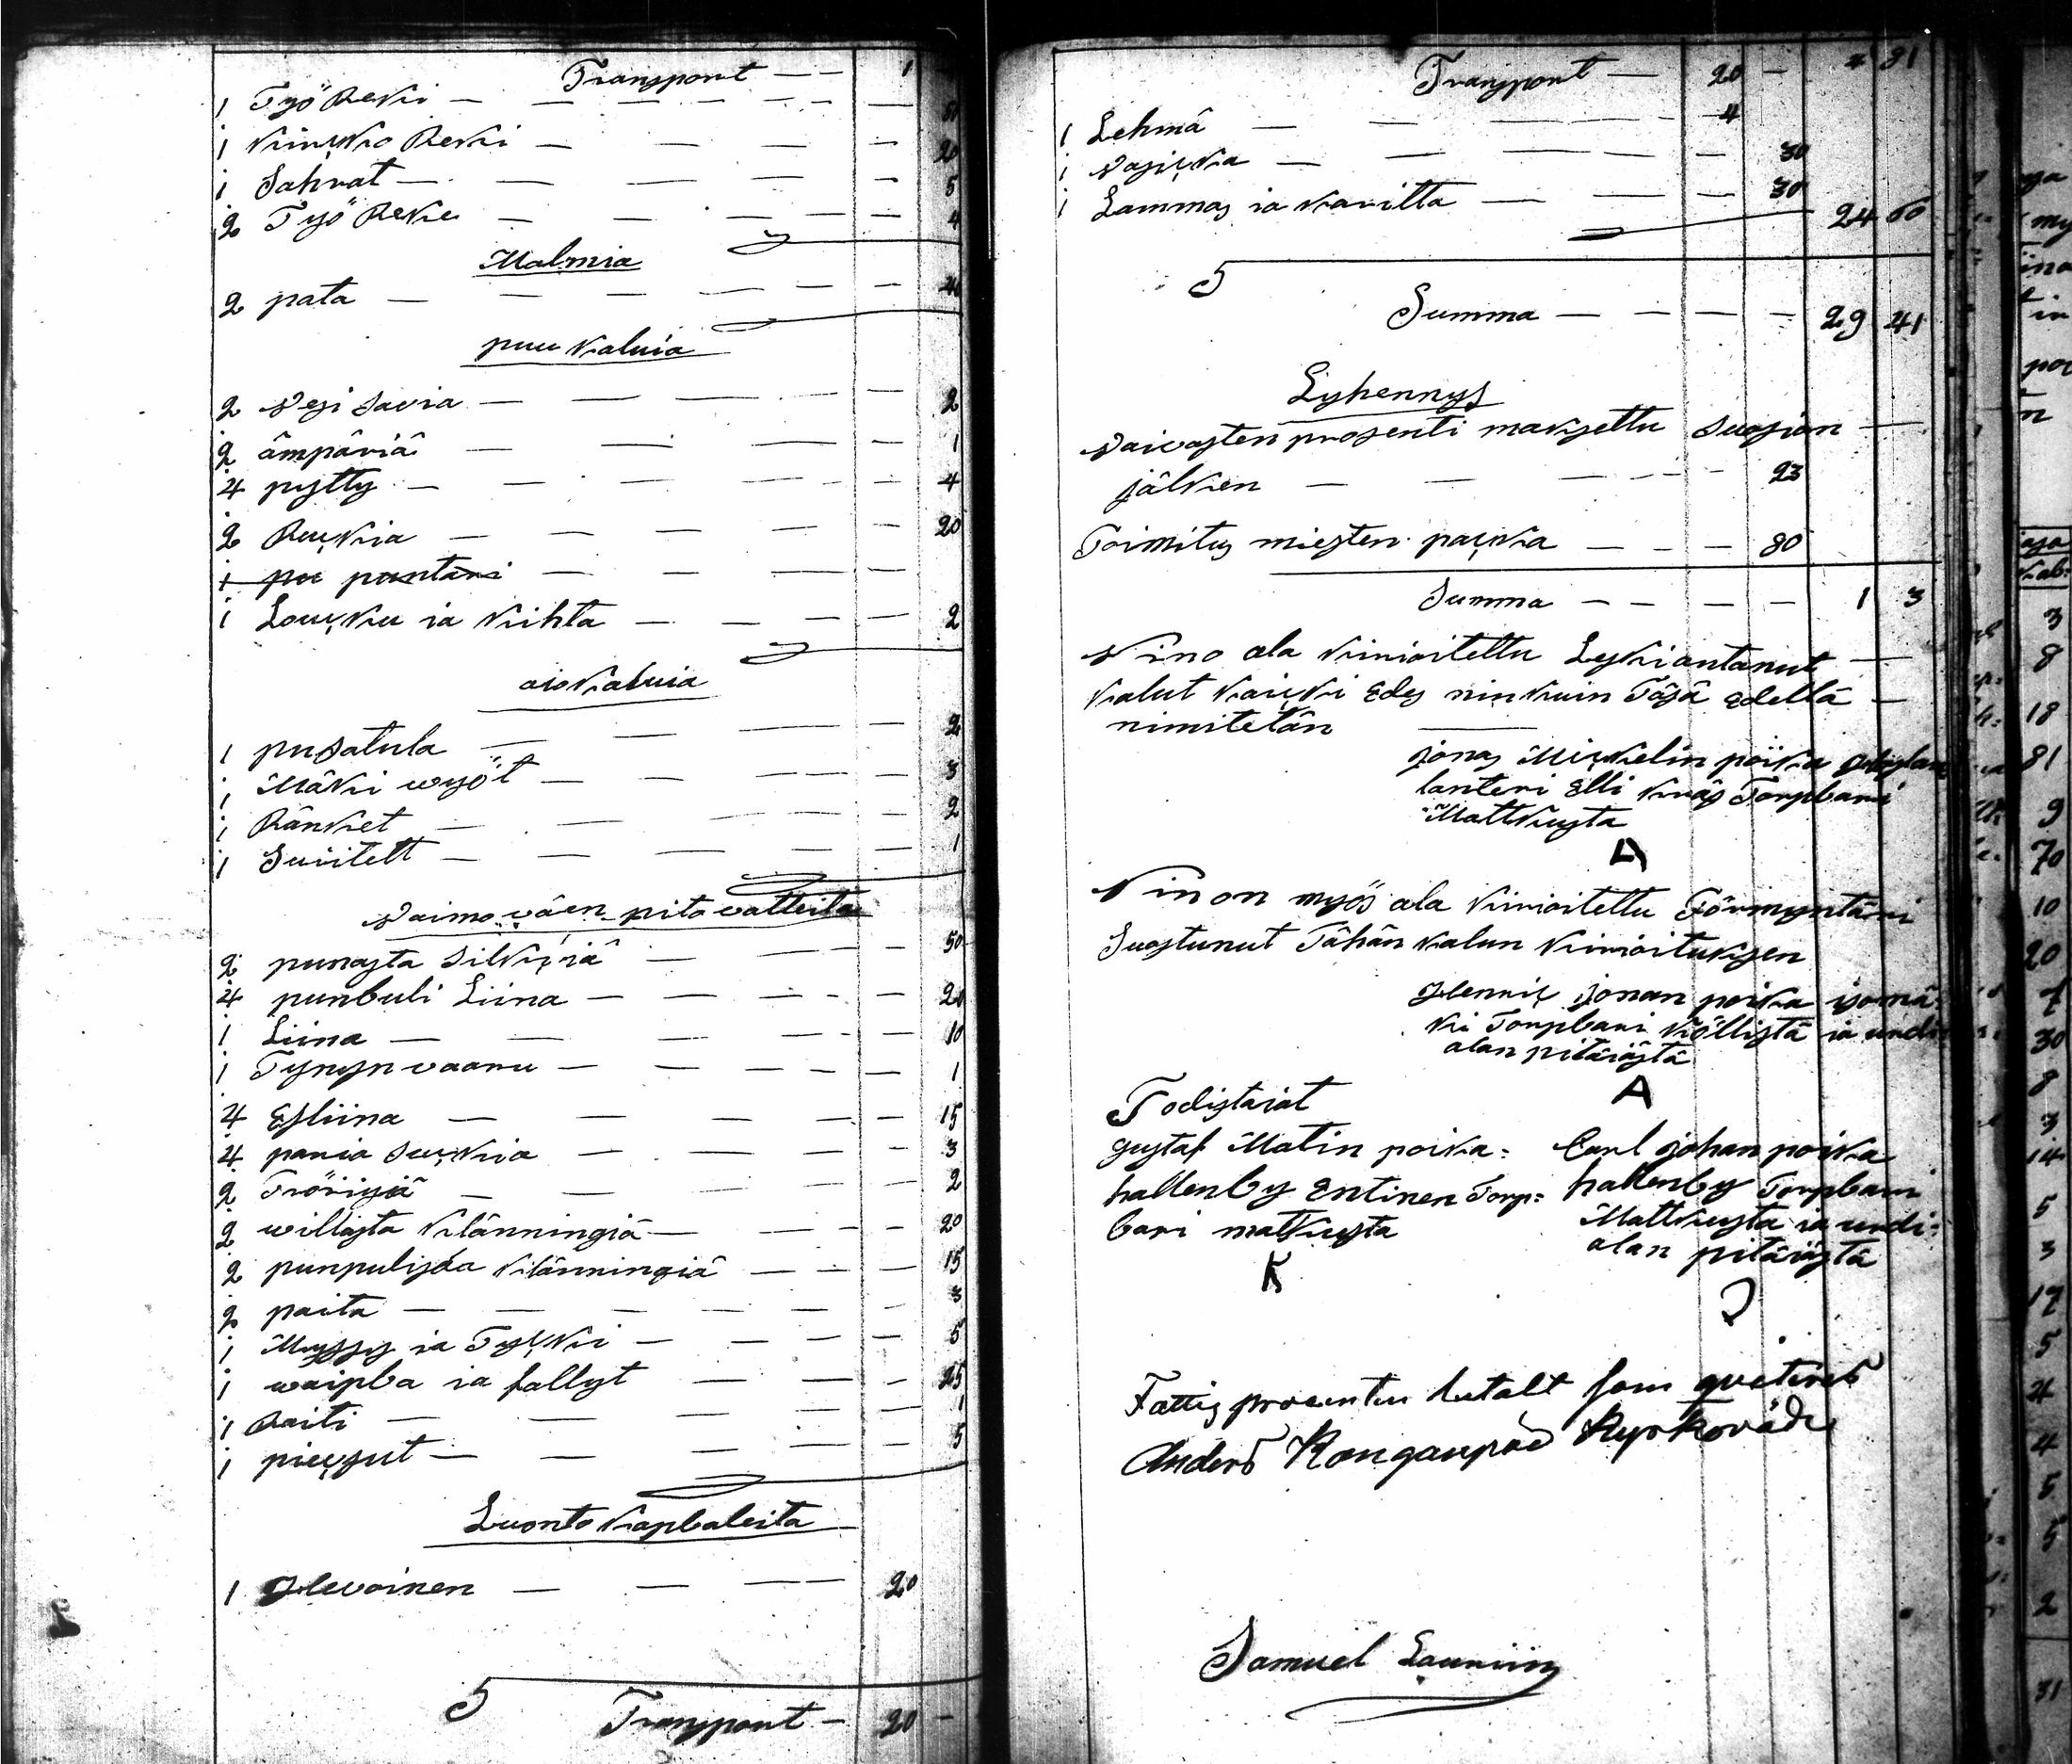 Transport — — 1
1 Työ Reki — — — — — —
1 Kirkko Reki — — — — — 20
1 Sahrat — — — — — 5
2 Työ Reke — — — — 4
Malmia
2 pata — — — — — —
puu kaluia
2 Vesi Savia — — — — — 2
2 ämpäriä — — — — 1
4 pytty — — — — — 4
2 Ruckia — — — — — 20
1 pu puntari — — — —
1 Loucku ia kihta — — — — 2
aiokaluia
1 puSatula — — — — — 2
1 Mäki wyöt — — — — 3
1 Ränket — — — — — 2
1 Suitelt — — — — — 1
Vaimo väen pito vatteita
2 punasta Silkiä — — — — 50
4 punbuli Liina — — — — — 20
1 Liina — — — — — 10
1 Tynyn vaaru — — — — — 1
4 Esliina — — — — 15
4 paria Suckia — — — — 3
2 Tröijyä — — — — 2
2 willasta Klänningiä — — — — 20
2 punpulista Klänningiä — — — 15
2 paita — — — — — — 3
1 Myssy ia Tycki — — — — 5
1 waipba ia fallyt — — — 25
1 Raiti — — — — — 1
1 piexut — — — — — 5
Luonto kapbaleita
1 Hevoinen — — — — 20
Transport — 20 —
Transport — 20 —
1 Lehmä — — — — — 4
1 Vasicka — — — — — — 30
1 Lammas ia karitta — — — 30
24 60
Summa — — — — — 29 41
Lyhennys
Vaivasten prosenti maksettu Suosion —
jälken — — — — 23
Toimitus miesten packa — — — 80
Summa — — — — 1 3
Nino ala kirioitettu Lykiantanut —
kalut kaicki Edes ninkuin Täsä Edellä —
nimitetän —
Jonas Mickelin poika
lanteri Elli kräs Torpbari
Mattkusta
A
Nin on myös ala kirioitettu Förmyntäri
Suostunut Tähän kalun kirioituksen
Henric Jonan poika isomä
ki Torpbari köllistä ia
alan pitäiästä
A
Todistaiat
gustaf Matin poika =
hallenby Entinen Torp=
bari matkusta
K
Carl johan poika
hallenby Torpbari
Mattkusta ia undi=
alan pitäiästä
Fattig procenten betalt som qviteras
Anders Kyrkovärd
Samuel